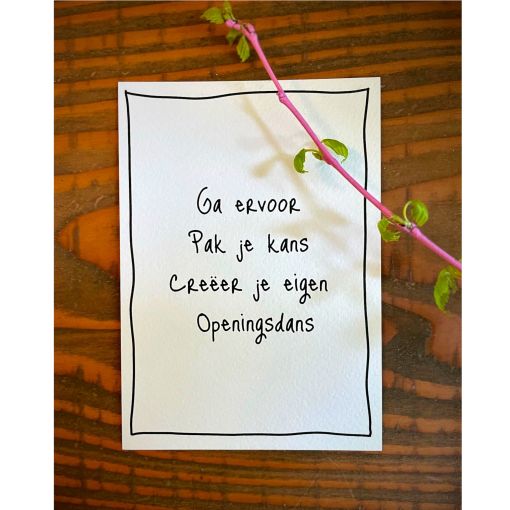 Ga ervoor
Pak je kans
Creëer je eigen
Openingsdans